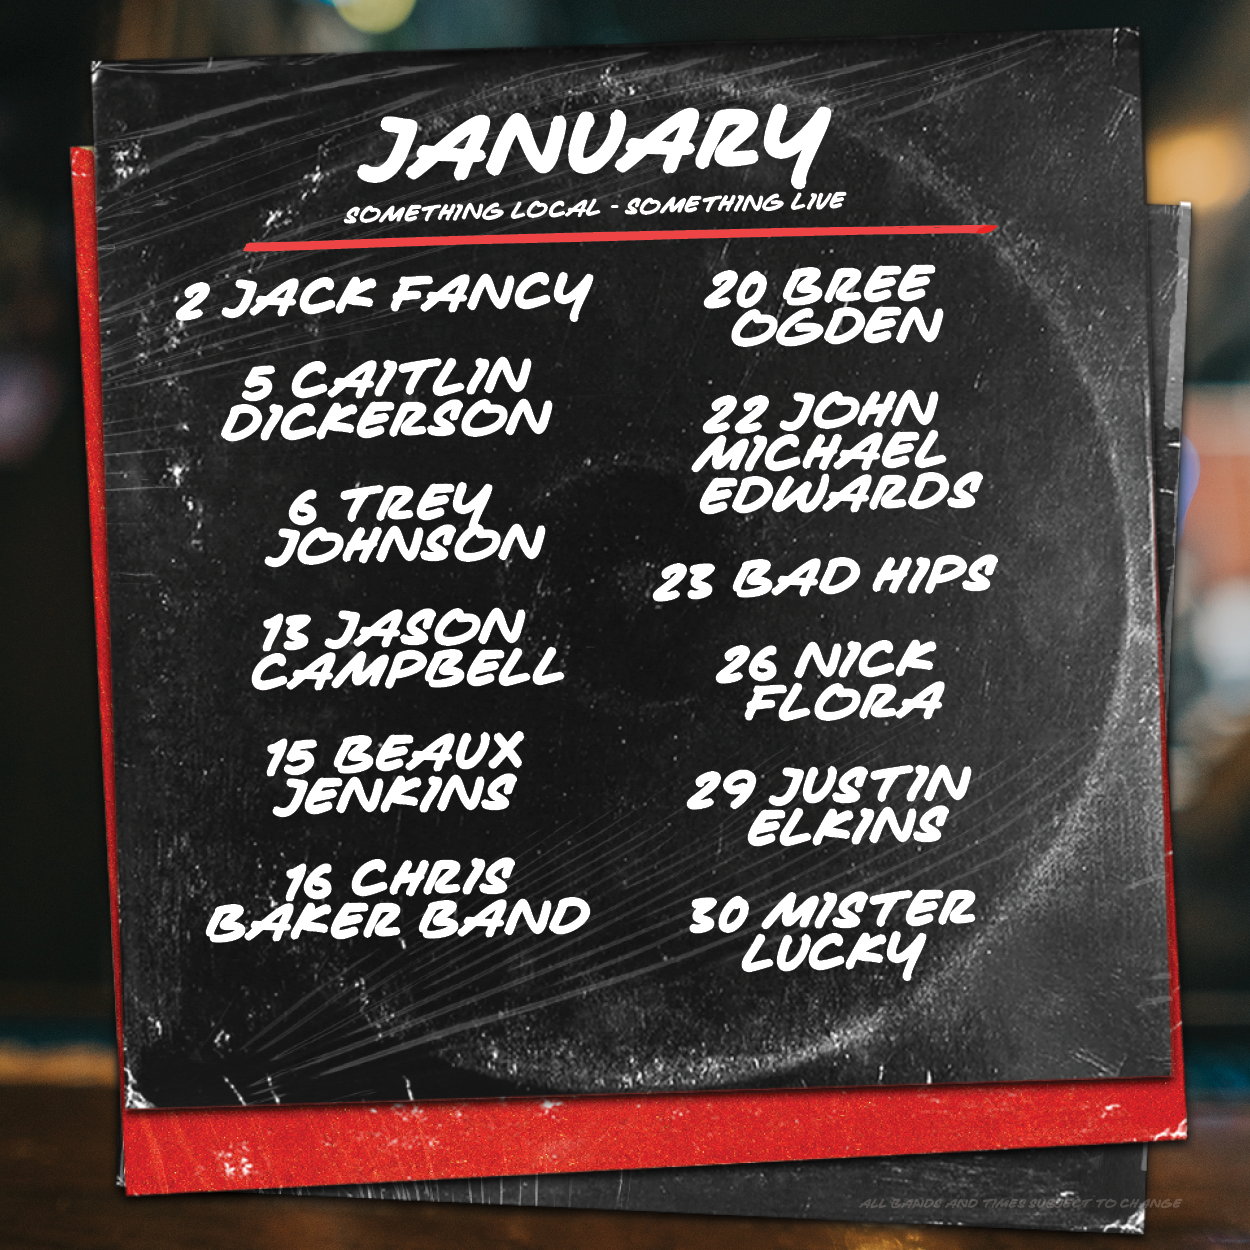 JANUARY
SOMETHING LOCAL - SOMETHING LIVE
2 JACK FANCY
5 CAITLIN
DICKERSON
6 TREY
JOHNSON
13 JASON
CAMPBELL
15 BEAUX
JENKINS
16 CHRIS
BAKER BAND
20 BREE
OGDEN
22 JOHN
MICHAEL
EDWARDS
23 BAD HIPS
26 NICK
FLORA
29 JUSTIN
ELKINS
30 MISTER
LUCKY
ALL BANDS AND TIMES SUBJECT TO CHANGE